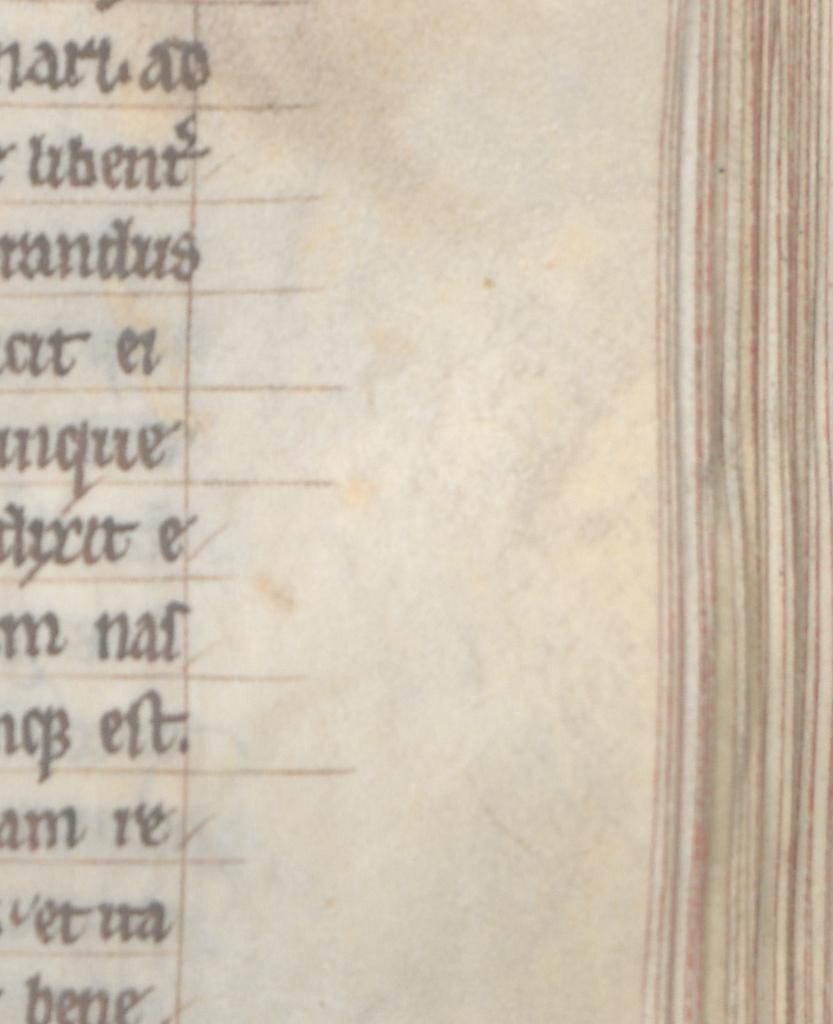 nari. ad
libent᷒
randus
cit ei
unque
dixit e
m nas
nqꝫ est.
am re
et ita
bene